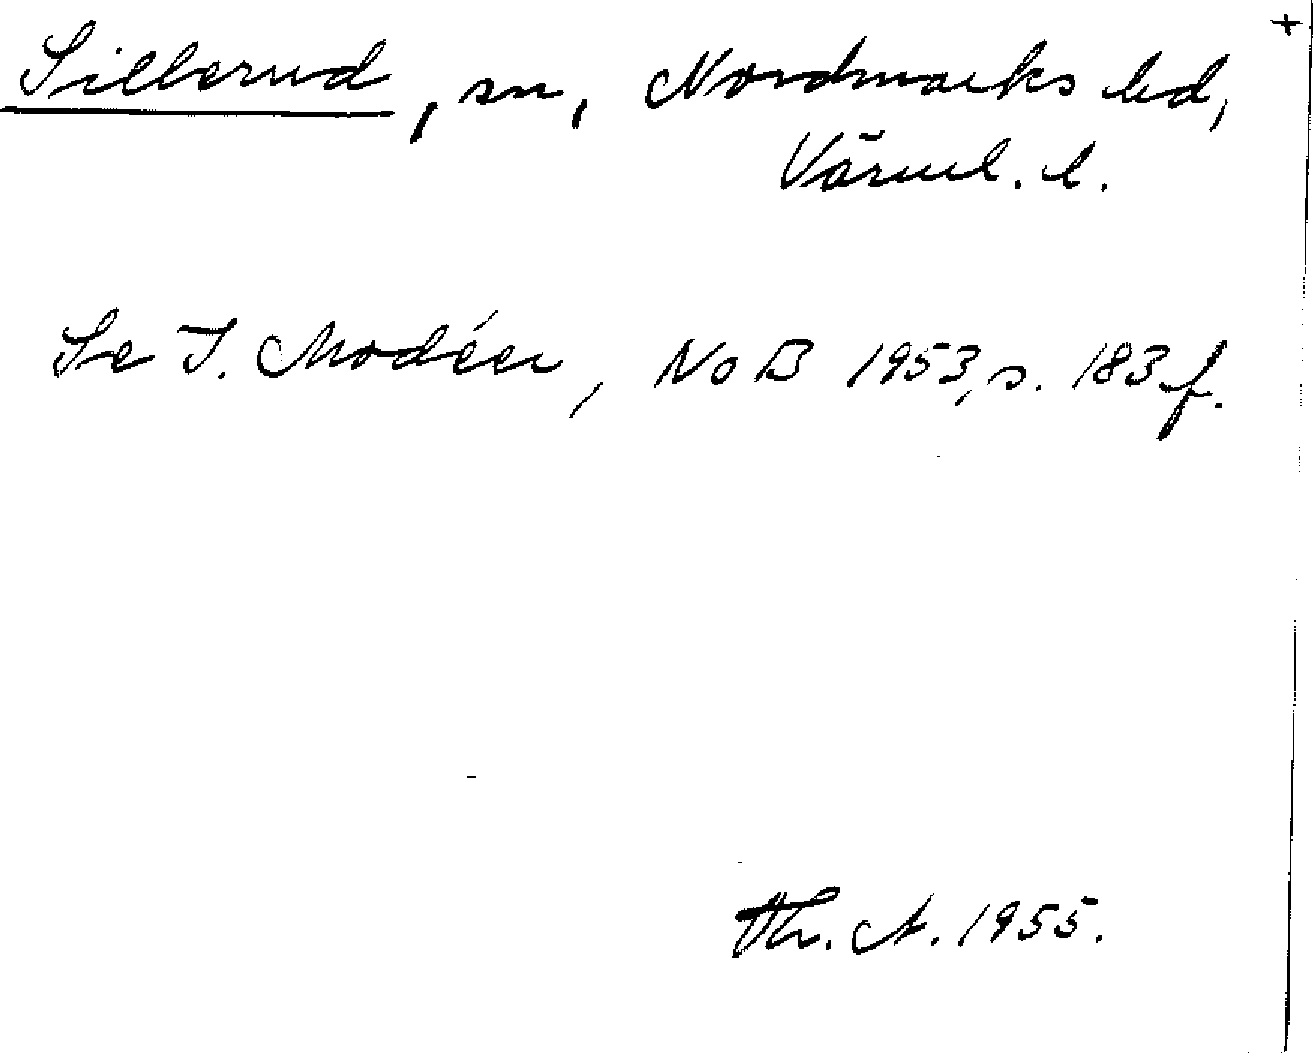 +
Sillerud, sn, Nordmarks hd,
Värml. l.
Se I. Modéer, NoB 1953, s. 183 f.
Th. A. 1955.